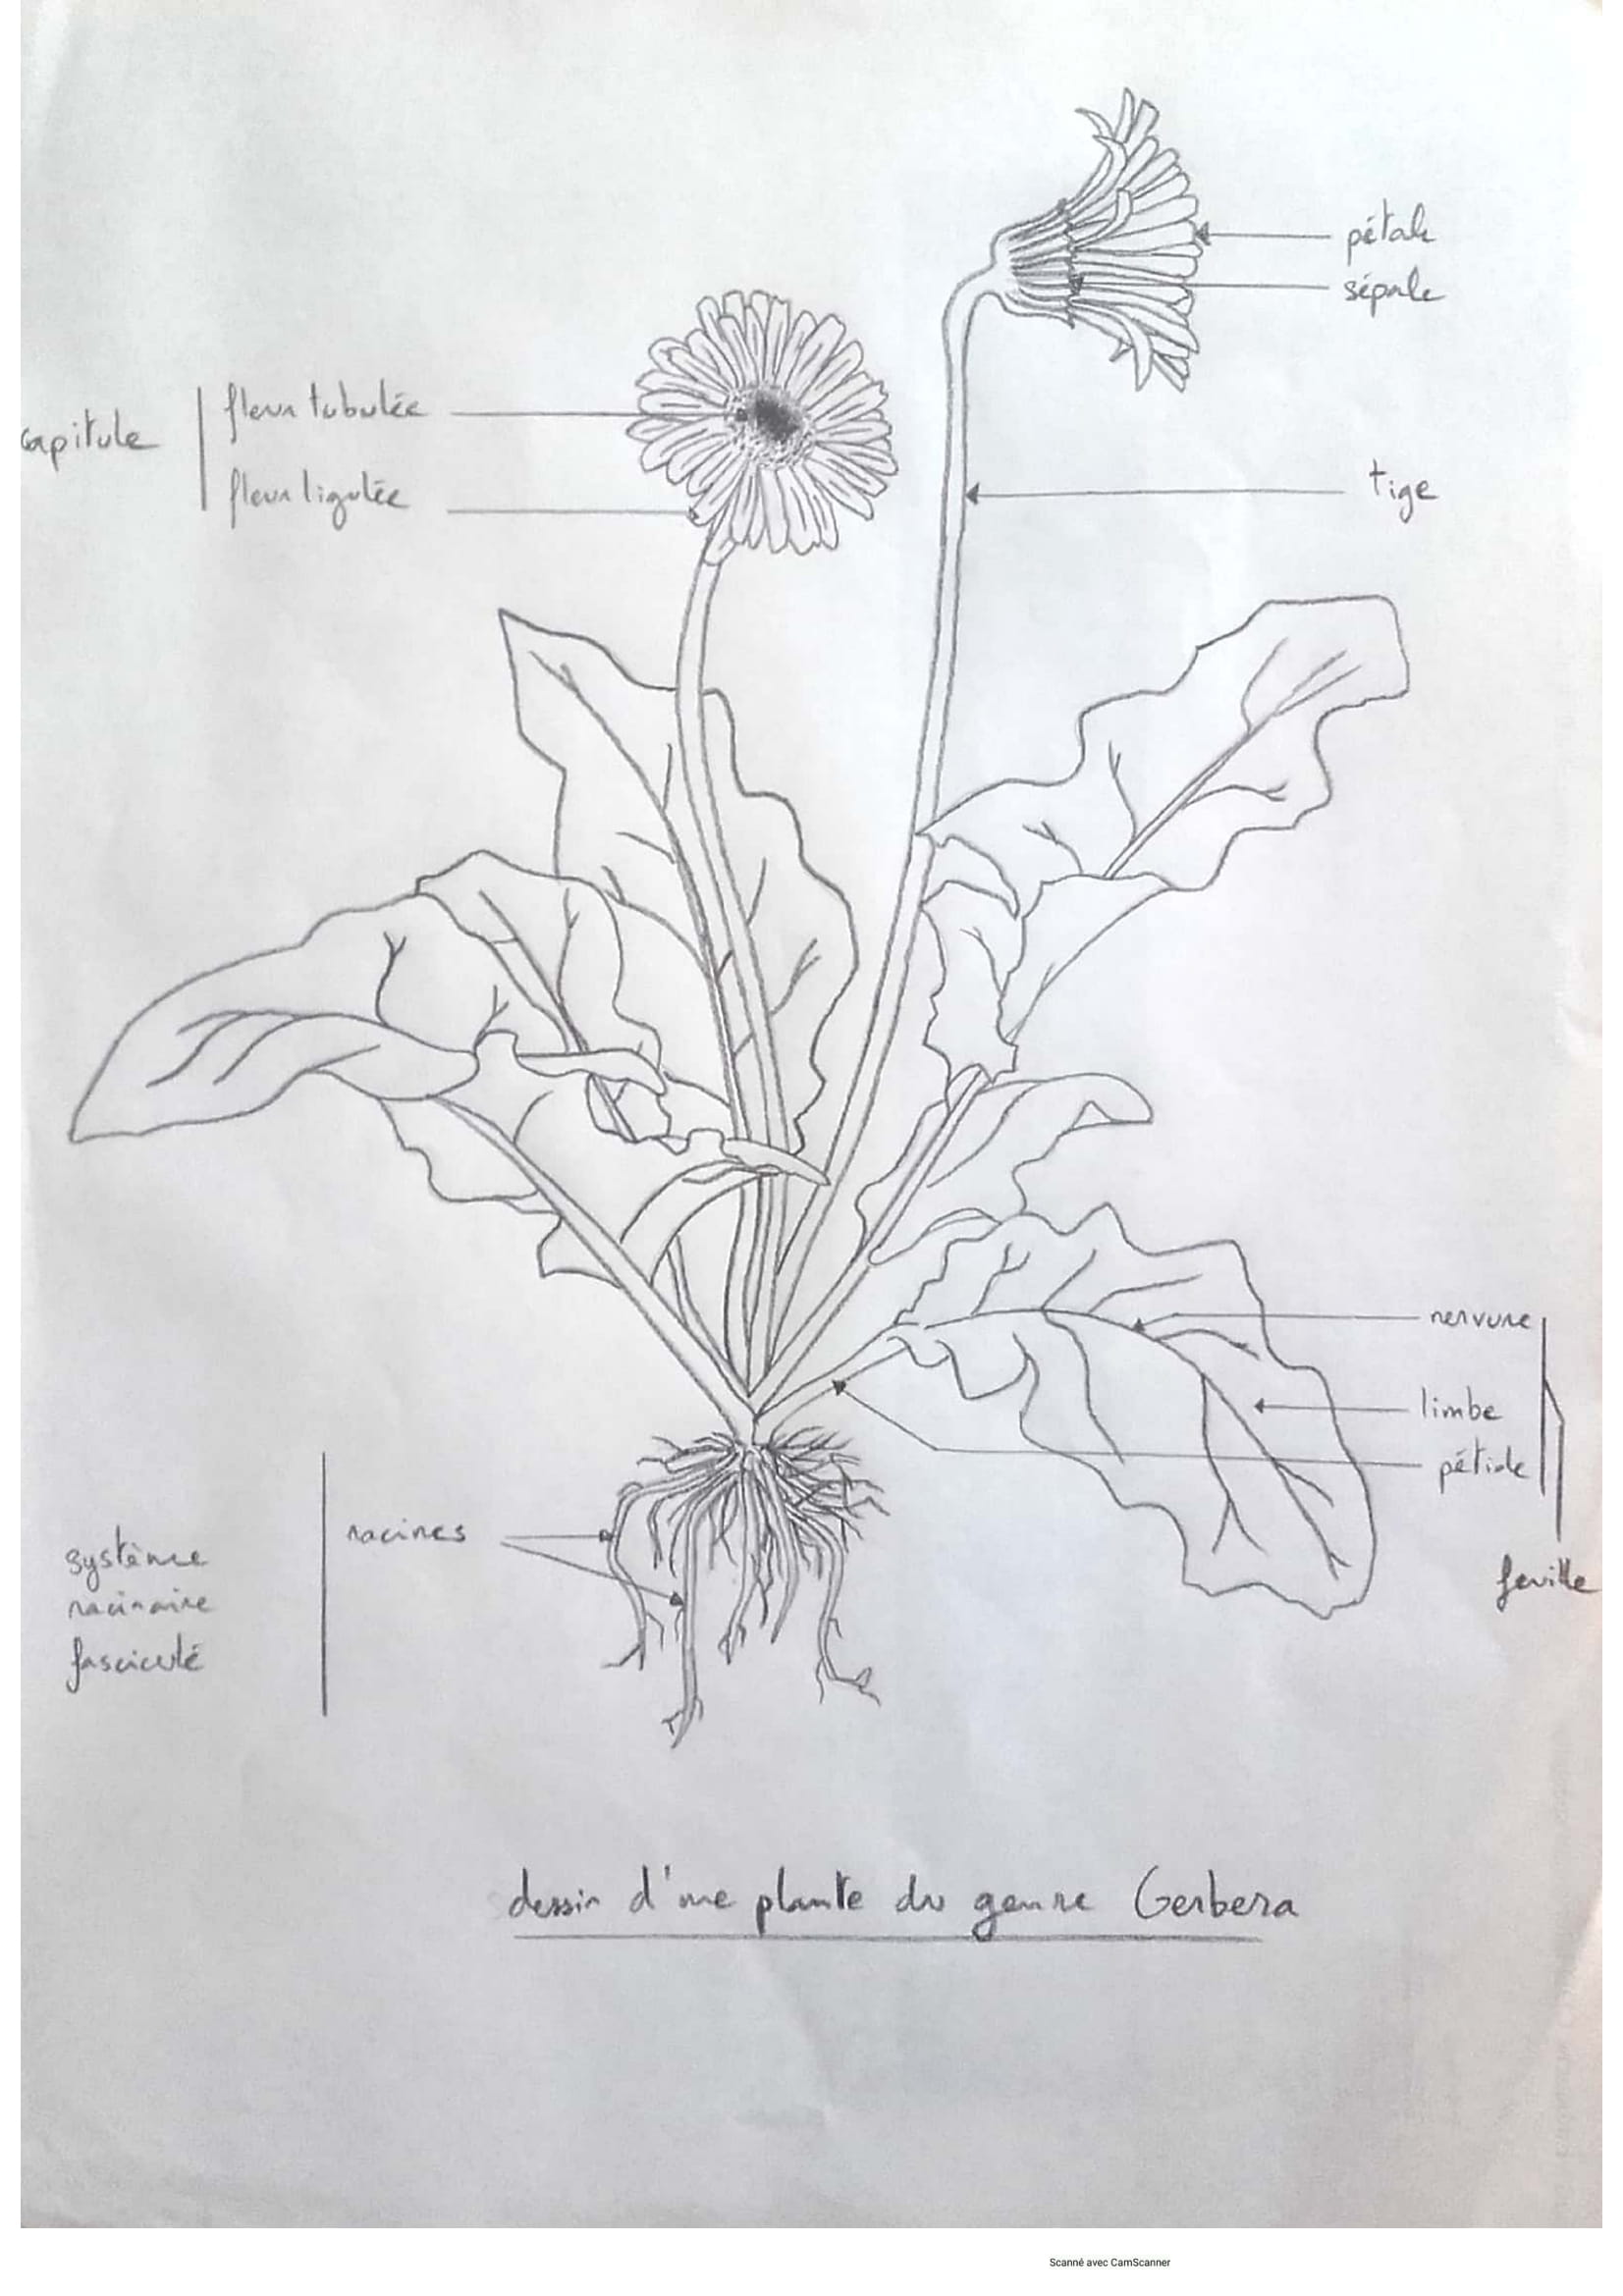 pétale
sépale
capitule
fleur tubulée
fleur ligulée
tige
nervure
limbe
pétiole
feuille
racines
système
racinaire
fasciculé
dessin d'une plante du genre Gerbera
Scanné avec CamScanner